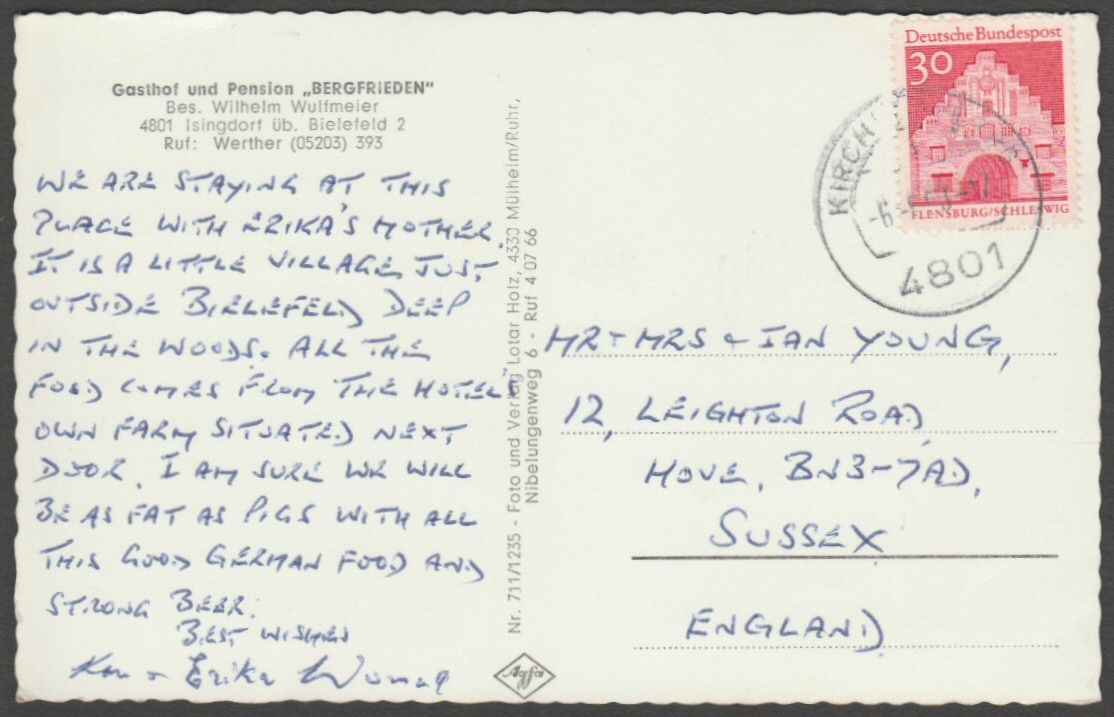 Gasthof und Pension „BERGFRIEDEN"
Bes. Wilhelm Wulfmeier
4801 Isingdorf üb. Bielefeld 2
Ruf: Werther (05203) 393
WE ARE STAYING AT THIS
PLACE WITH ERIKA'S MOTHER.
IT IS A LITTLE VILLAGE, JUST
OUTSIDE BIELEFELD DEEP
IN THE WOODS. ALL THE
FOOD COMES FROM THE HOTEL'S
OWN FARM SITUATED NEXT
DOOR. I AM SURE WE WILL
BE AS FAT AS PIGS WITH ALL
THIS GOOD GERMAN FOOD AND
STRONG BEER.
BEST WISHES
Ken + Erika
Nr. 711/1235 - Foto und Verlag Lotar Holz, 4330 Mülheim/Ruhr,
Nibelungenweg 6 - Ruf 4 07 66
Agfa
Deutsche Bundespost
30
FLENSBURG/SCHLESWIG
KIRCH
4801
MR + MRS + IAN YOUNG,
12, LEIGHTON ROAD,
HOVE, BN3-7AD,
SUSSEX
ENGLAND